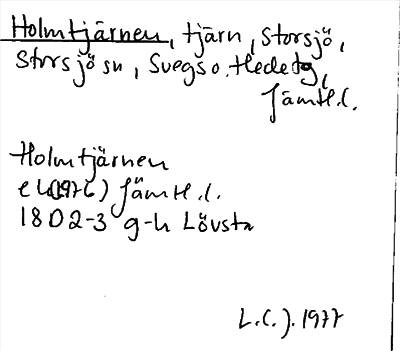 Holmtjärnen, tjärn, Storsjö,
Storsjö sn, Svegs o. Hede tg,
Jämtl.l.
Holmtjärnen
ek(1976) Jämtl.l.
18D2-3 g-h Lövsta
L.C.J. 1977